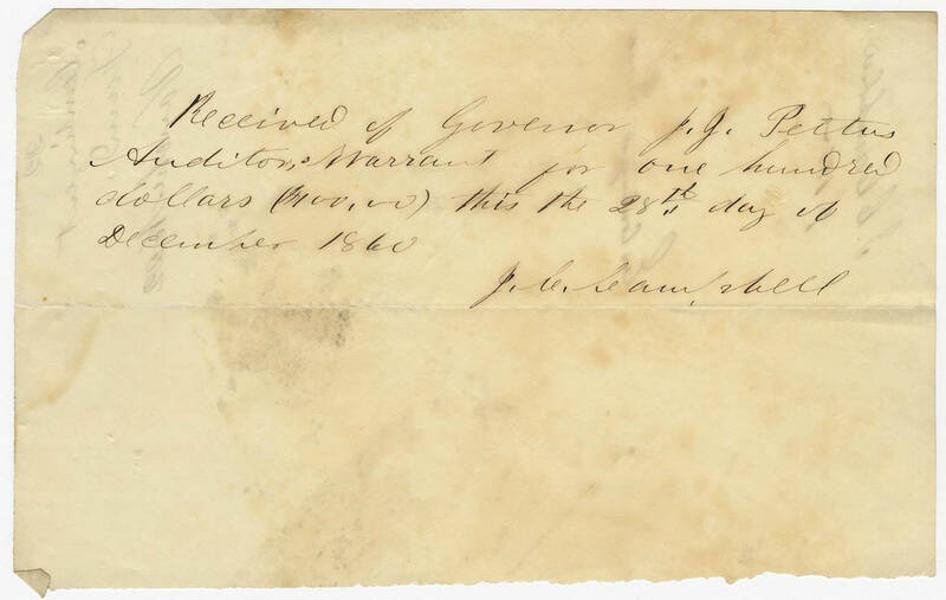 Received of Governor J. J. Pettus
Auditors Warrant for one hundred
dollars (100,00) this the 28th day of
December 1860
J. C. Campbell